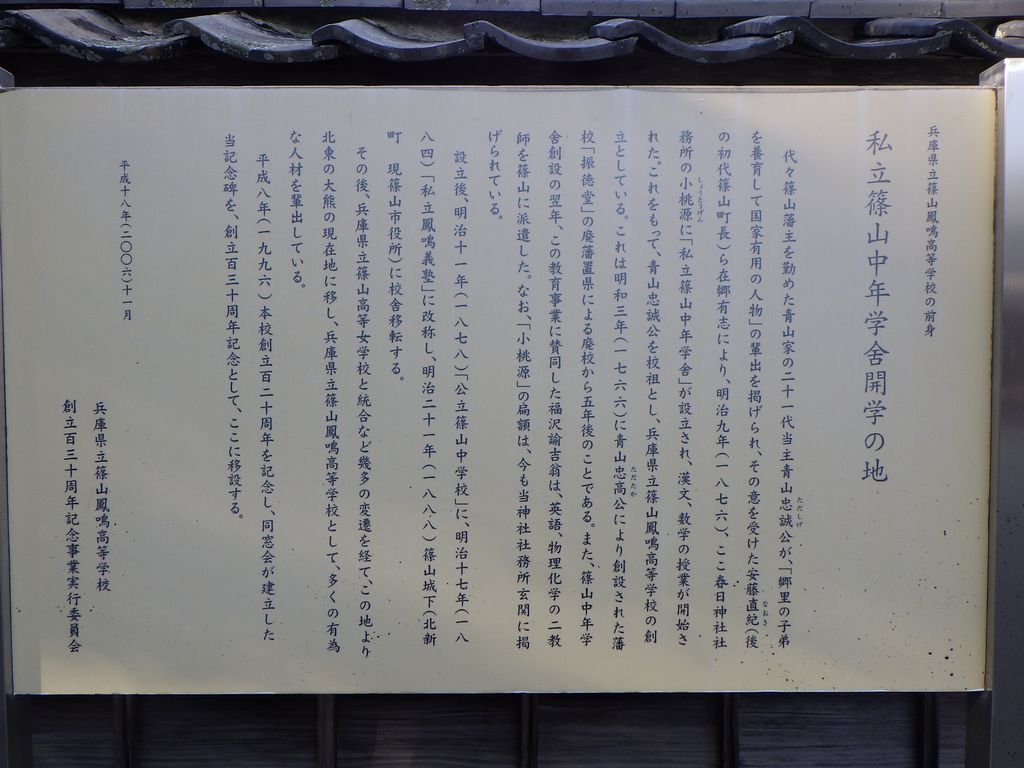 兵庫県立篠山鳳鳴高等学校の前身
私立篠山中年学舎開学の地
代々篠山藩主を勤めた青山家の二十一代当主青山忠誠公が、「郷里の子弟
ただしげ
を養育して国家有用の人物」の輩出を掲げられ、その意を受けた安藤直紀(後
なおき
の初代篠山町長)ら在郷有志により、明治九年(一八七六)、ここ春日神社社
務所の小桃源に「私立篠山中年学舎」が設立され、漢文、数学の授業が開始さ
しょうとうげん
れた。これをもって、青山忠誠公を校祖とし、兵庫県立篠山鳳鳴高等学校の創
立としている。これは明和三年(一七六六)に青山忠高公により創設された藩
ただたか
校「振徳堂」の廃藩置県による廃校から五年後のことである。また、篠山中年学
舎創設の翌年、この教育事業に賛同した福沢諭吉翁は、英語、物理化学の二教
師を篠山に派遣した。なお、「小桃源」の扁額は、今も当神社社務所玄関に掲
げられている。
設立後、明治十一年(一八七八)「公立篠山中学校」に、明治十七年(一八
八四)「私立鳳鳴義塾」に改称し、明治二十一年(一八八八)篠山城下(北新
町 現篠山市役所)に校舎移転する。
その後、兵庫県立篠山高等女学校と統合など幾多の変遷を経て、この地より
北東の大熊の現在地に移し、兵庫県立篠山鳳鳴高等学校として、多くの有為
な人材を輩出している。
平成八年(一九九六)本校創立百二十周年を記念し、同窓会が建立した
当記念碑を、創立百三十周年記念として、ここに移設する。
平成十八年(二〇〇六)十一月
兵庫県立篠山鳳鳴高等学校
創立百三十周年記念事業実行委員会